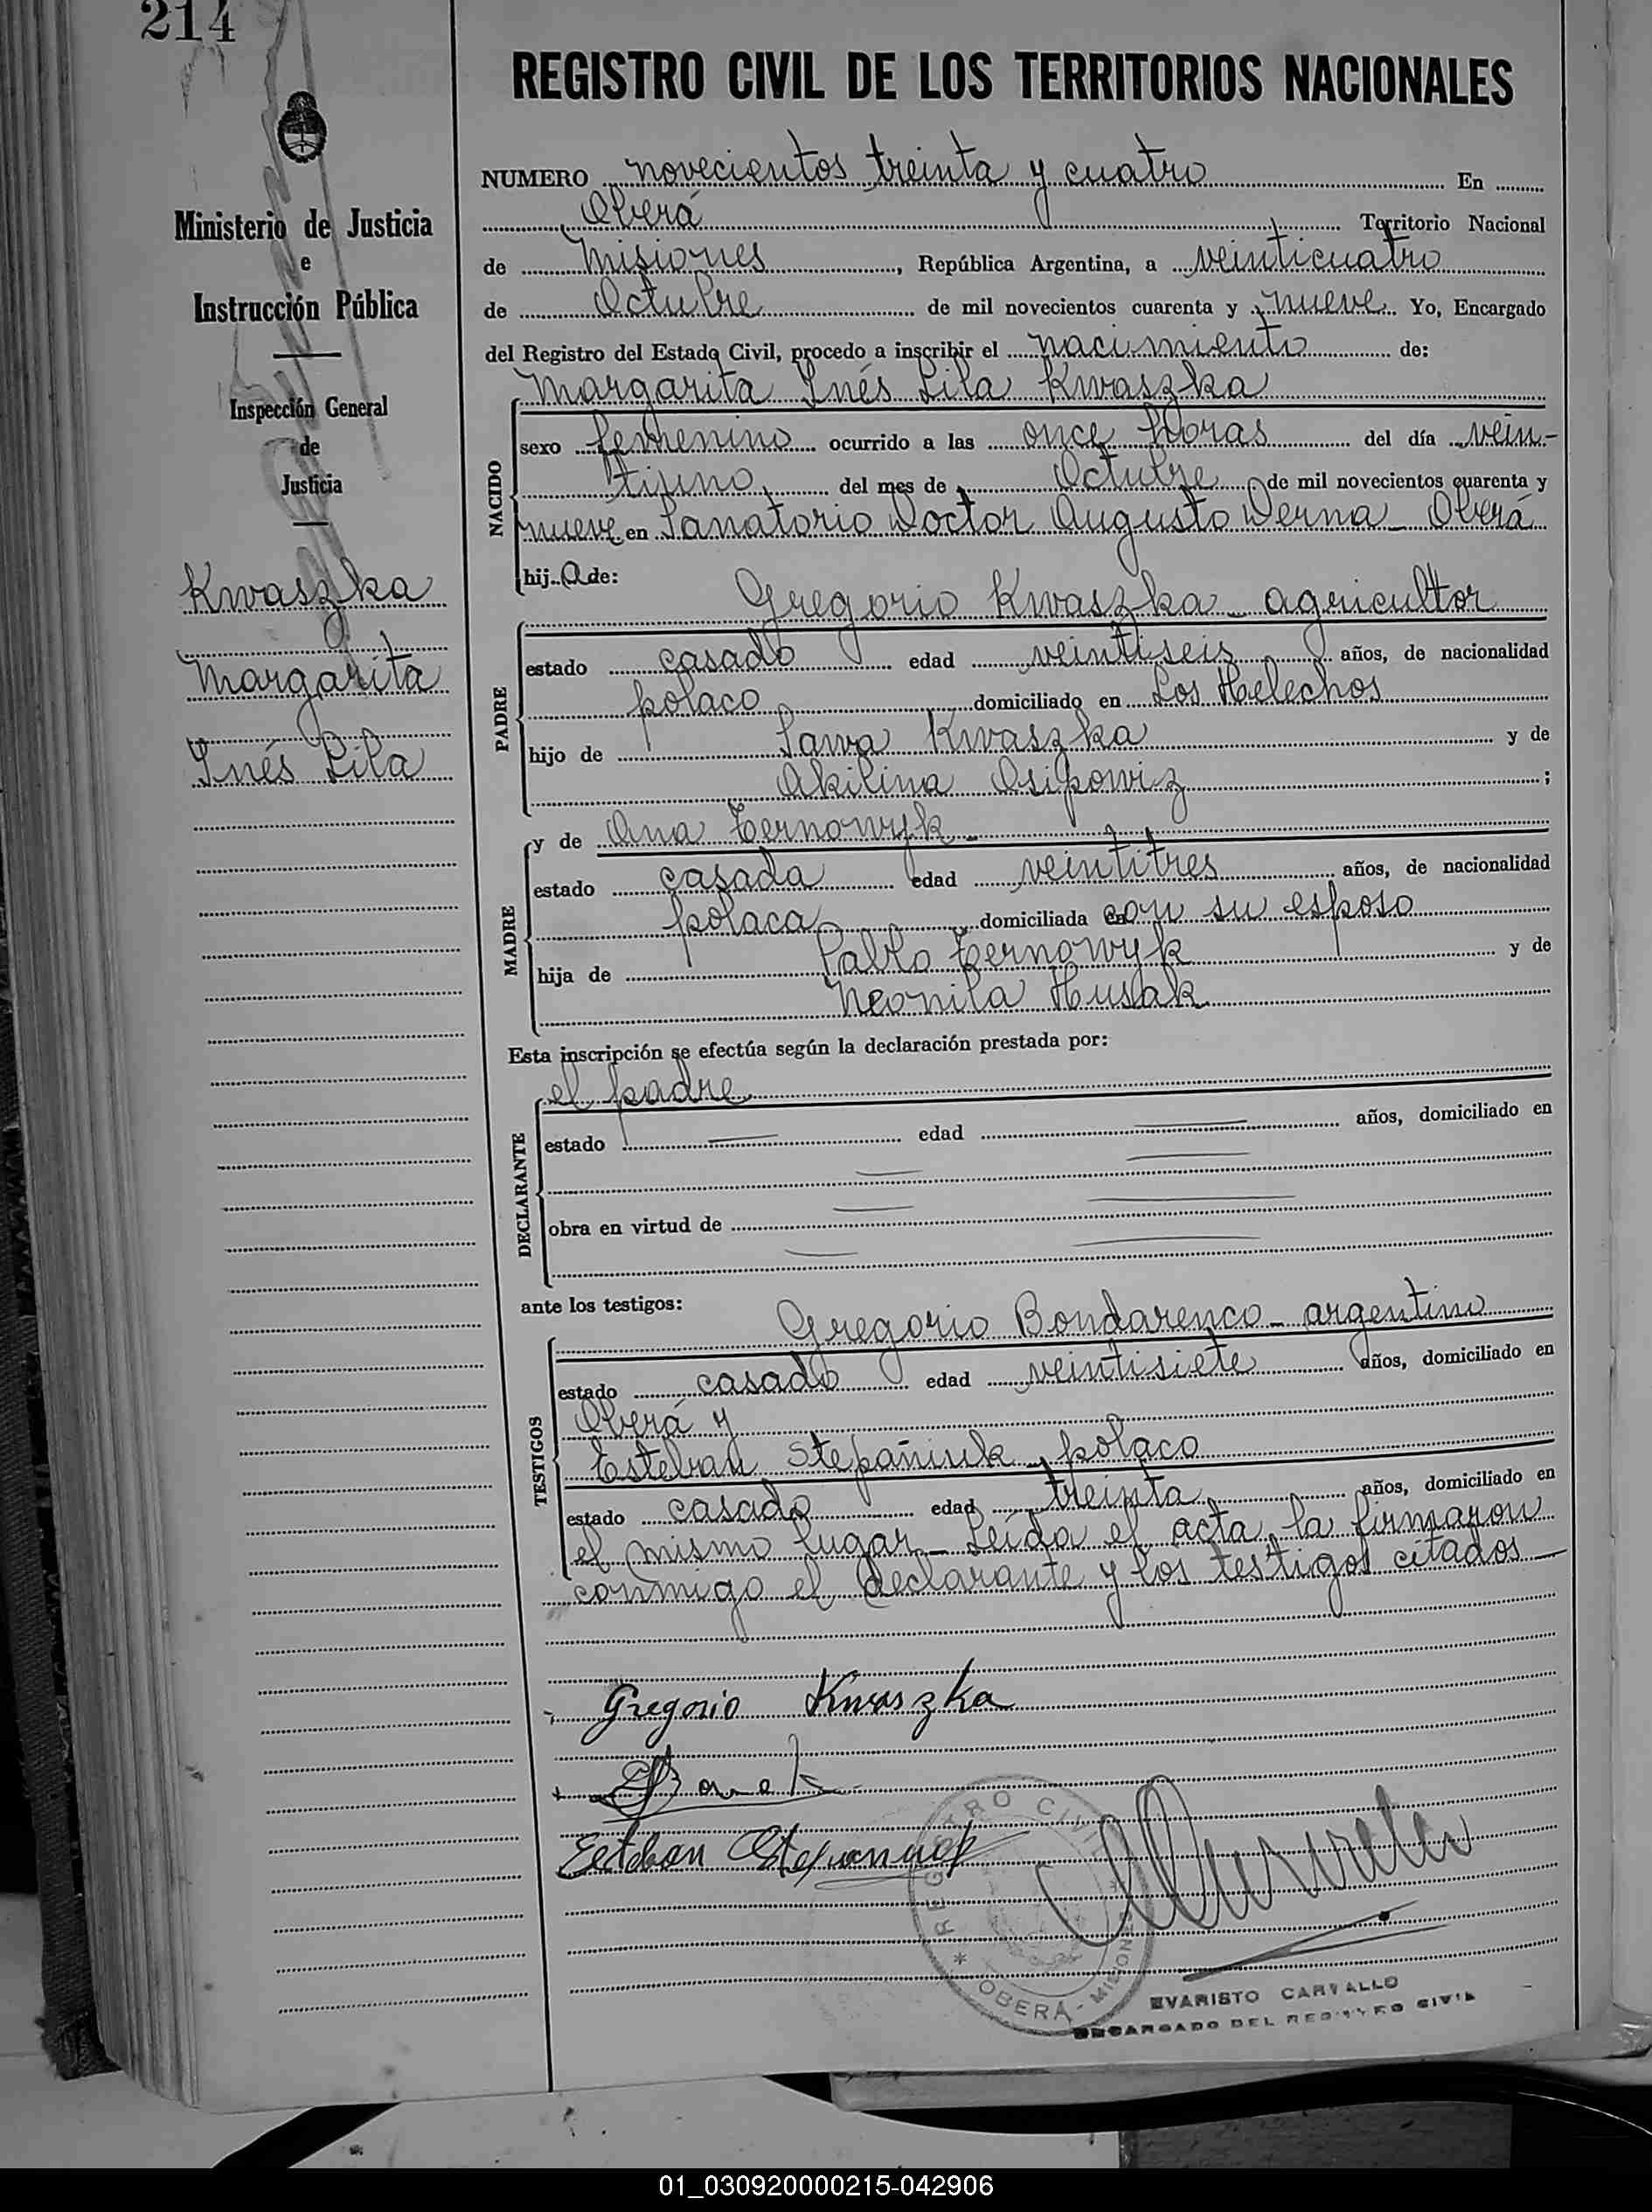 214
REGISTRO CIVIL DE LOS TERRITORIOS NACIONALES
Ministerio de Justicia
e
Instrucción Pública
Inspección General
de
Justicia
Kwaszka
Margarita
Inés Lila
NUMERO novecientos treinta y cuatro En
Oberá Territorio Nacional
de Misiones, República Argentina, a veinticuatro
de Octubre de mil novecientos cuarenta y nueve. Yo, Encargado
del Registro del Estado Civil, procedo a inscribir el nacimiento de:
NACIDO
Margarita Inés Lila Kwaszka
sexo femenino ocurrido a las once horas del día vein-
tiuno del mes de Octubre de mil novecientos cuarenta y
nueve en Sanatorio Doctor Augusto Derna - Oberá
hija de:
PADRE
Gregorio Kwaszka - agricultor
estado casado edad veintiseis años, de nacionalidad
polaco domiciliado en Los Helechos
hijo de Sawa Kwaszka y de
Akilina Osipowiz ;
MADRE
y de Ana Ternowyk -
estado casada edad veintitres años, de nacionalidad
polaca domiciliada con su esposo
hija de Pablo Ternowyk y de
Neonila Husak
Esta inscripción se efectúa según la declaración prestada por:
DECLARANTE
el padre
estado edad años, domiciliado en
obra en virtud de
ante los testigos:
TESTIGOS
Gregorio Bondarenco - argentino
estado casado edad veintisiete años, domiciliado en
Oberá y
Esteban Stepañiuk, polaco
estado casado edad treinta años, domiciliado en
el mismo lugar - Leída el acta, la firmaron
conmigo el declarante y los testigos citados -
Gregorio Kwaszka
Esteban
REGISTRO CIVIL
* OBERÁ - MISIONES *
EVARISTO CARVALLO
ENCARGADO DEL REGISTRO CIVIL
01_030920000215-042906